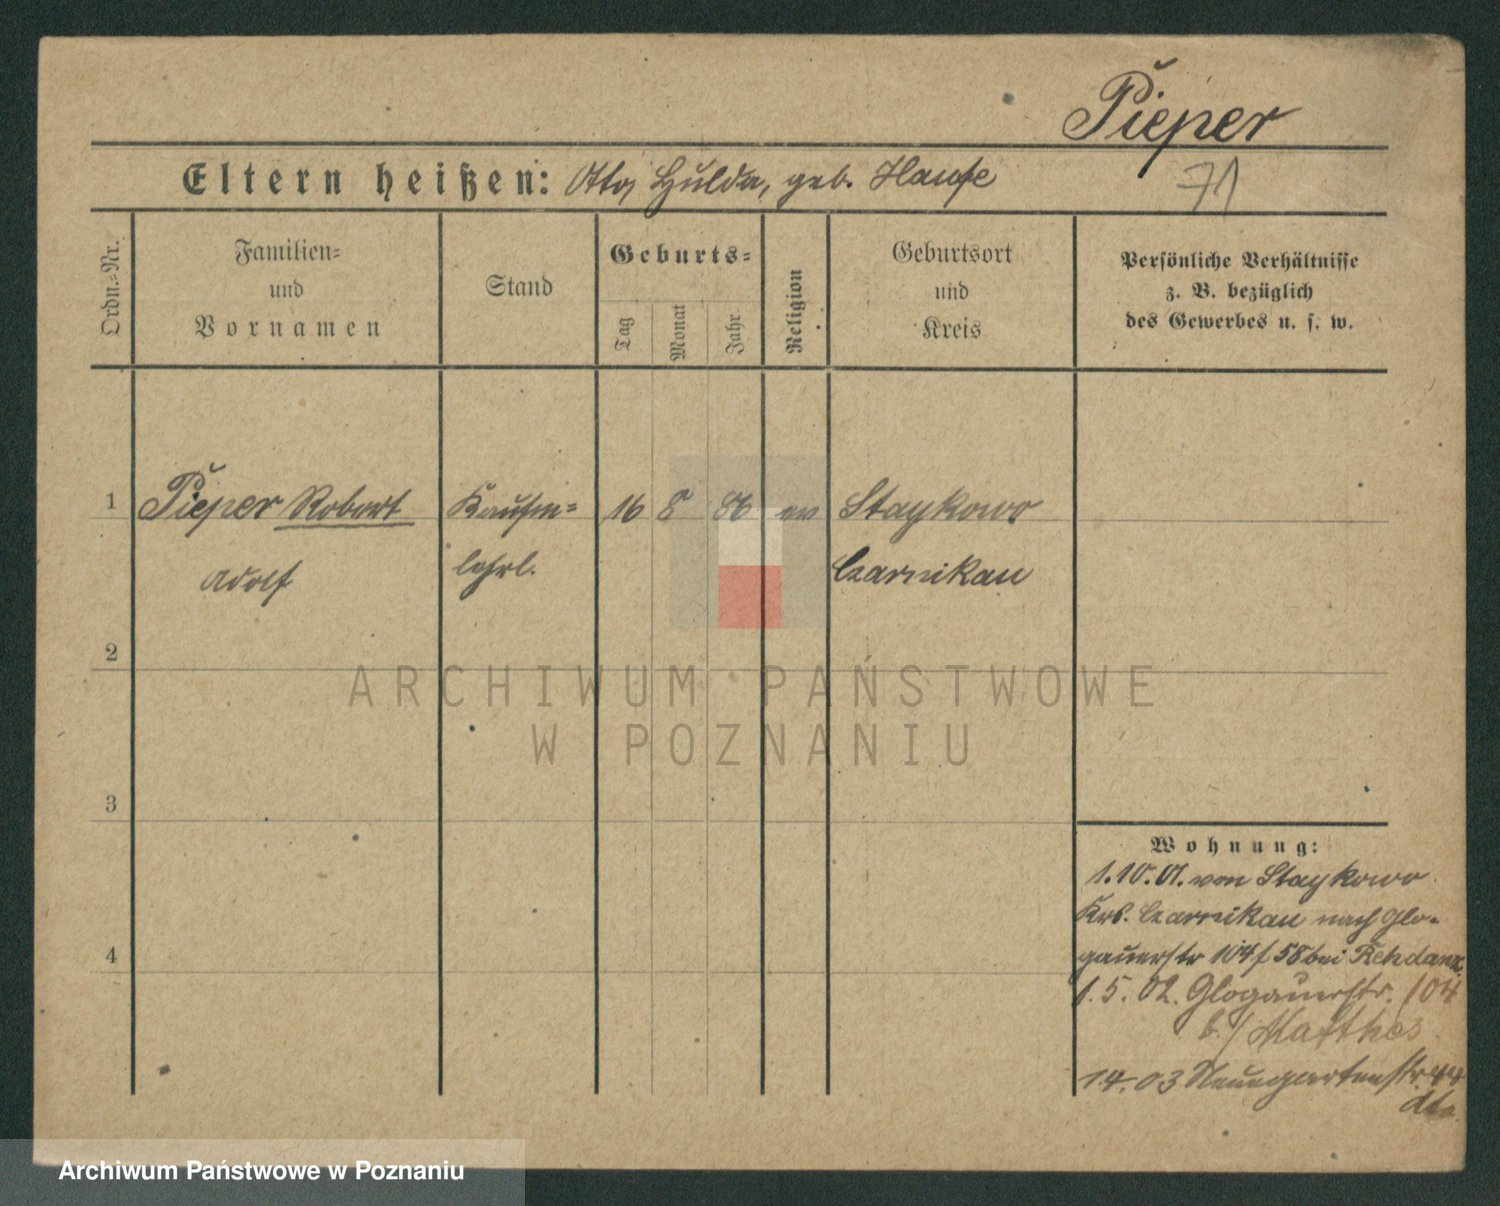 Pieper
Eltern heißen: Otto, Hulda, geb. Haufe
71
Ordn.-Nr.
Familien-
und
Vornamen
Stand
Geburts-
Tag
Monat
Jahr
Religion
Geburtsort
und
Kreis
Persönliche Verhältnisse
z. B. bezüglich
des Gewerbes u. s. w.
1 Pieper Robert Kaufm- 16 8 86 ev Staykowo
Adolf lehrl. Czarnikau
2
ARCHIWUM PAŃSTWOWE
W POZNANIU
3
Wohnung:
1.10.01. von Staykowo
Krs. Czarnikau nach Glo-
gauerstr 104 / 58 bei Rehdanz
1.5.02. Glogauerstr. 104
b./ Matthes
1.4.03 Neuegartenstr. 44
dto
4
Archiwum Państwowe w Poznaniu